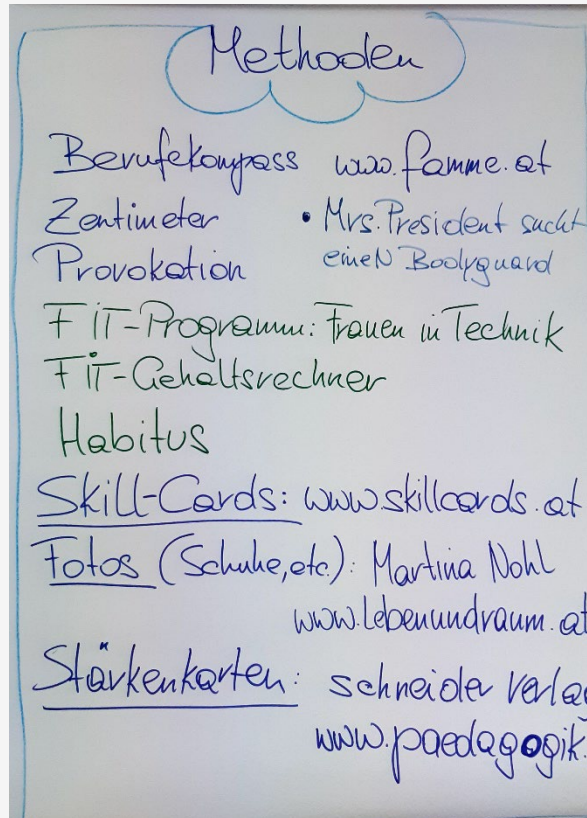 Methoden
Berufekompass www.famme.at
Zentimeter • Mrs. President sucht
Provokation eineN Bodyguard
FiT-Programm: Frauen in Technik
FiT-Gehaltsrechner
Habitus
Skill-Cards: www.skillcards.at
Fotos (Schuhe, etc.): Martina Nohl
www.lebenundraum.at
Stärkenkarten: schneider Verla
www.paedagogik.